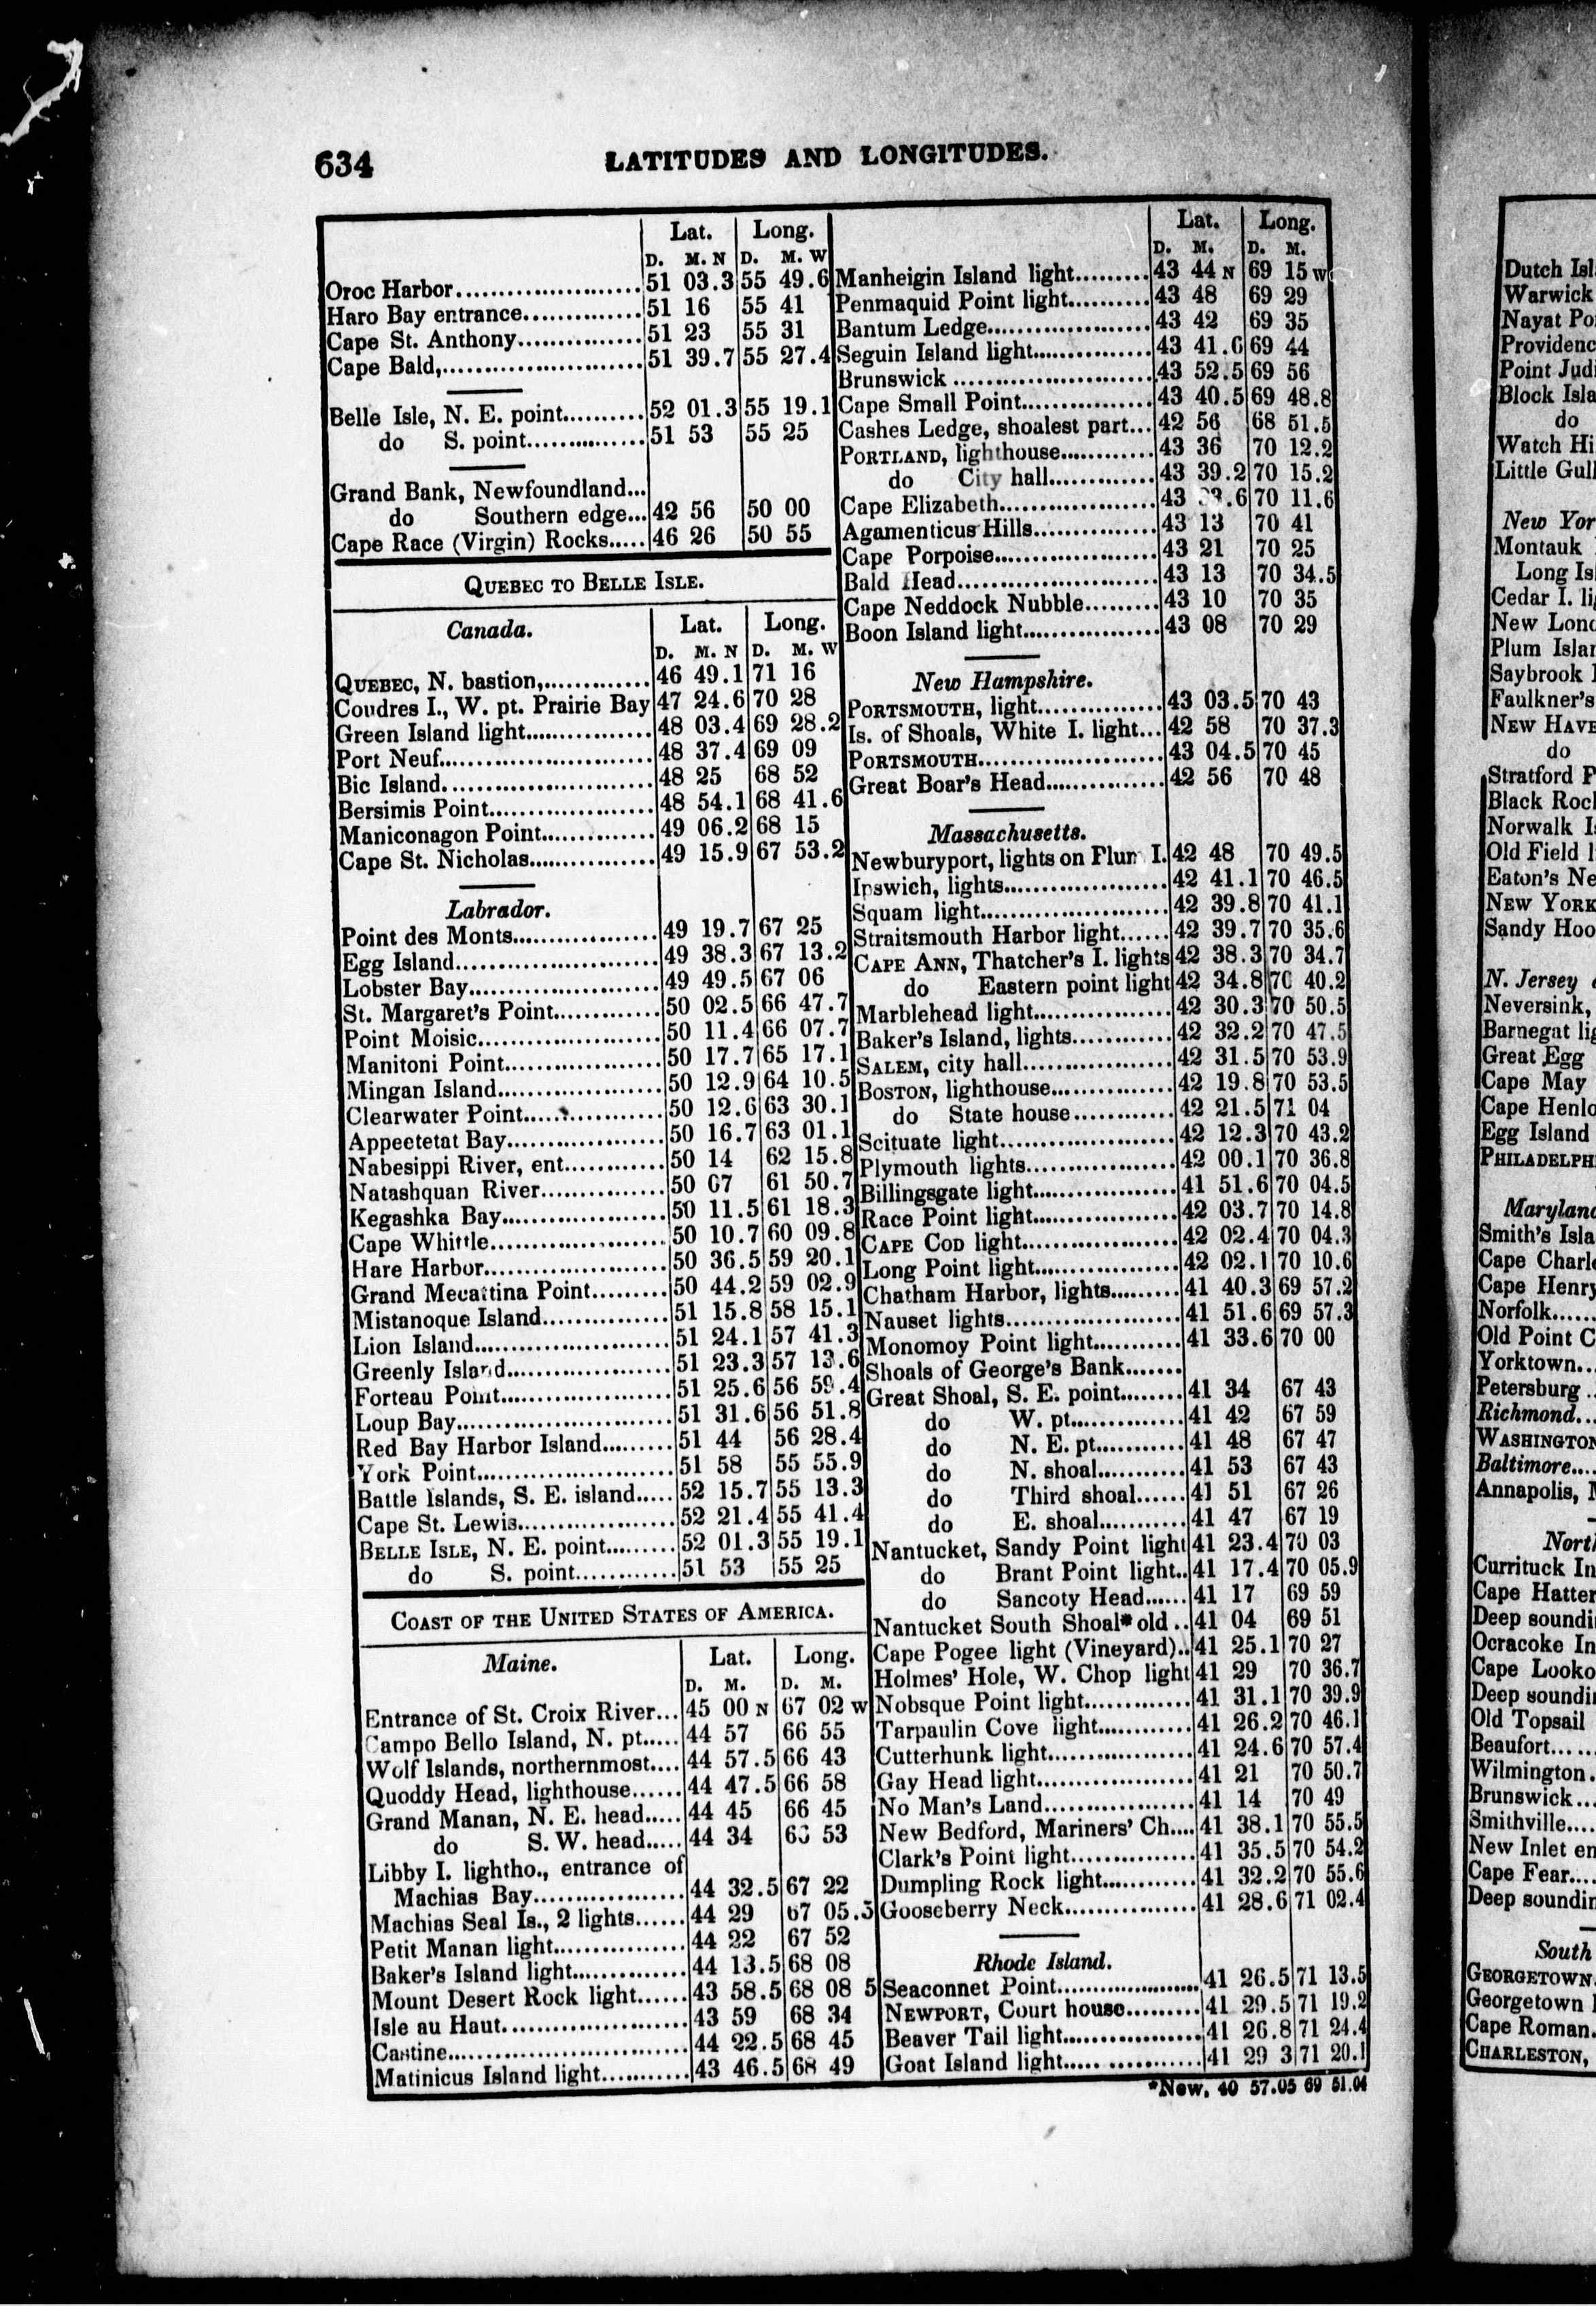 634 LATITUDES AND LONGITUDES.
Lat. Long.
D. M. N D. M. W
Oroc Harbor 51 03.3 55 49.6
Haro Bay entrance 51 16 55 41
Cape St. Anthony 51 23 55 31
Cape Bald, 51 39.7 55 27.4
Belle Isle, N. E. point 52 01.3 55 19.1
do S. point 51 53 55 25
Grand Bank, Newfoundland...
do Southern edge... 42 56 50 00
Cape Race (Virgin) Rocks 46 26 50 55
QUEBEC TO BELLE ISLE.
Canada. Lat. Long.
D. M. N D. M. W
QUEBEC, N. bastion, 46 49.1 71 16
Coudres I., W. pt. Prairie Bay 47 24.6 70 28
Green Island light 48 03.4 69 28.2
Port Neuf 48 37.4 69 09
Bic Island 48 25 68 52
Bersimis Point 48 54.1 68 41.6
Maniconagon Point 49 06.2 68 15
Cape St. Nicholas 49 15.9 67 53.2
Labrador.
Point des Monts 49 19.7 67 25
Egg Island 49 38.3 67 13.2
Lobster Bay 49 49.5 67 06
St. Margaret's Point 50 02.5 66 47.7
Point Moisic 50 11.4 66 07.7
Manitoni Point 50 17.7 65 17.1
Mingan Island 50 12.9 64 10.5
Clearwater Point 50 12.6 63 30.1
Appeetetat Bay 50 16.7 63 01.1
Nabesippi River, ent 50 14 62 15.8
Natashquan River 50 07 61 50.7
Kegashka Bay 50 11.5 61 18.3
Cape Whittle 50 10.7 60 09.8
Hare Harbor 50 36.5 59 20.1
Grand Mecattina Point 50 44.2 59 02.9
Mistanoque Island 51 15.8 58 15.1
Lion Island 51 24.1 57 41.3
Greenly Island 51 23.3 57 13.6
Forteau Point 51 25.6 56 59.4
Loup Bay 51 31.6 56 51.8
Red Bay Harbor Island 51 44 56 28.4
York Point 51 58 55 55.9
Battle Islands, S. E. island 52 15.7 55 13.3
Cape St. Lewis 52 21.4 55 41.4
BELLE ISLE, N. E. point 52 01.3 55 19.1
do S. point 51 53 55 25
COAST OF THE UNITED STATES OF AMERICA.
Maine. Lat. Long.
D. M. D. M.
Entrance of St. Croix River... 45 00 N 67 02 W
Campo Bello Island, N. pt 44 57 66 55
Wolf Islands, northernmost 44 57.5 66 43
Quoddy Head, lighthouse 44 47.5 66 58
Grand Manan, N. E. head 44 45 66 45
do S. W. head 44 34 66 53
Libby I. lightho., entrance of
Machias Bay 44 32.5 67 22
Machias Seal Is., 2 lights 44 29 67 05.5
Petit Manan light 44 22 67 52
Baker's Island light 44 13.5 68 08
Mount Desert Rock light 43 58.5 68 08 5
Isle au Haut 43 59 68 34
Castine 44 22.5 68 45
Matinicus Island light 43 46.5 68 49
Lat. Long.
D. M. D. M.
Manheigin Island light 43 44 N 69 15 W
Penmaquid Point light 43 48 69 29
Bantum Ledge 43 42 69 35
Seguin Island light 43 41.6 69 44
Brunswick 43 52.5 69 56
Cape Small Point 43 40.5 69 48.8
Cashes Ledge, shoalest part... 42 56 68 51.5
PORTLAND, lighthouse 43 36 70 12.2
do City hall 43 39.2 70 15.2
Cape Elizabeth 43 .6 70 11.6
Agamenticus Hills 43 13 70 41
Cape Porpoise 43 21 70 25
Bald Head 43 13 70 34.5
Cape Neddock Nubble 43 10 70 35
Boon Island light 43 08 70 29
New Hampshire.
PORTSMOUTH, light 43 03.5 70 43
Is. of Shoals, White I. light... 42 58 70 37.3
PORTSMOUTH 43 04.5 70 45
Great Boar's Head 42 56 70 48
Massachusetts.
Newburyport, lights on Plum I. 42 48 70 49.5
Ipswich, lights 42 41.1 70 46.5
Squam light 42 39.8 70 41.1
Straitsmouth Harbor light 42 39.7 70 35.6
CAPE ANN, Thatcher's I. lights 42 38.3 70 34.7
do Eastern point light 42 34.8 70 40.2
Marblehead light 42 30.3 70 50.5
Baker's Island, lights 42 32.2 70 47.5
SALEM, city hall 42 31.5 70 53.9
BOSTON, lighthouse 42 19.8 70 53.5
do State house 42 21.5 71 04
Scituate light 42 12.3 70 43.2
Plymouth lights 42 00.1 70 36.8
Billingsgate light 41 51.6 70 04.5
Race Point light 42 03.7 70 14.8
CAPE COD light 42 02.4 70 04.3
Long Point light 42 02.1 70 10.6
Chatham Harbor, lights 41 40.3 69 57.2
Nauset lights 41 51.6 69 57.3
Monomoy Point light 41 33.6 70 00
Shoals of George's Bank
Great Shoal, S. E. point 41 34 67 43
do W. pt 41 42 67 59
do N. E. pt 41 48 67 47
do N. shoal 41 53 67 43
do Third shoal 41 51 67 26
do E. shoal 41 47 67 19
Nantucket, Sandy Point light 41 23.4 70 03
do Brant Point light.. 41 17.4 70 05.9
do Sancoty Head 41 17 69 59
Nantucket South Shoal* old .. 41 04 69 51
Cape Pogee light (Vineyard).. 41 25.1 70 27
Holmes' Hole, W. Chop light 41 29 70 36.7
Nobsque Point light 41 31.1 70 39.9
Tarpaulin Cove light 41 26.2 70 46.1
Cutterhunk light 41 24.6 70 57.4
Gay Head light 41 21 70 50.7
No Man's Land 41 14 70 49
New Bedford, Mariners' Ch.... 41 38.1 70 55.5
Clark's Point light 41 35.5 70 54.2
Dumpling Rock light 41 32.2 70 55.6
Gooseberry Neck 41 28.6 71 02.4
Rhode Island.
Seaconnet Point 41 26.5 71 13.5
NEWPORT, Court house 41 29.5 71 19.2
Beaver Tail light 41 26.8 71 24.4
Goat Island light 41 29 3 71 20.1
*New, 40 57.05 69 51.04
Dutch Isl
Warwick
Nayat Po
Providenc
Point Judi
Block Isla
do
Watch Hi
Little Gull
New Yor
Montauk
Long Is
Cedar I. li
New Lond
Plum Islan
Saybrook
Faulkner's
NEW HAVE
do
Stratford P
Black Rock
Norwalk I
Old Field
Eaton's Ne
NEW YORK
Sandy Hoo
N. Jersey
Neversink,
Barnegat lig
Great Egg
Cape May
Cape Henlo
Egg Island
PHILADELPH
Maryland
Smith's Isla
Cape Charl
Cape Henry
Norfolk
Old Point C
Yorktown
Petersburg
Richmond
WASHINGTON
Baltimore
Annapolis,
North
Currituck In
Cape Hatter
Deep soundi
Ocracoke In
Cape Looko
Deep soundi
Old Topsail
Beaufort
Wilmington
Brunswick
Smithville
New Inlet en
Cape Fear
Deep soundin
South
GEORGETOWN
Georgetown
Cape Roman
CHARLESTON,